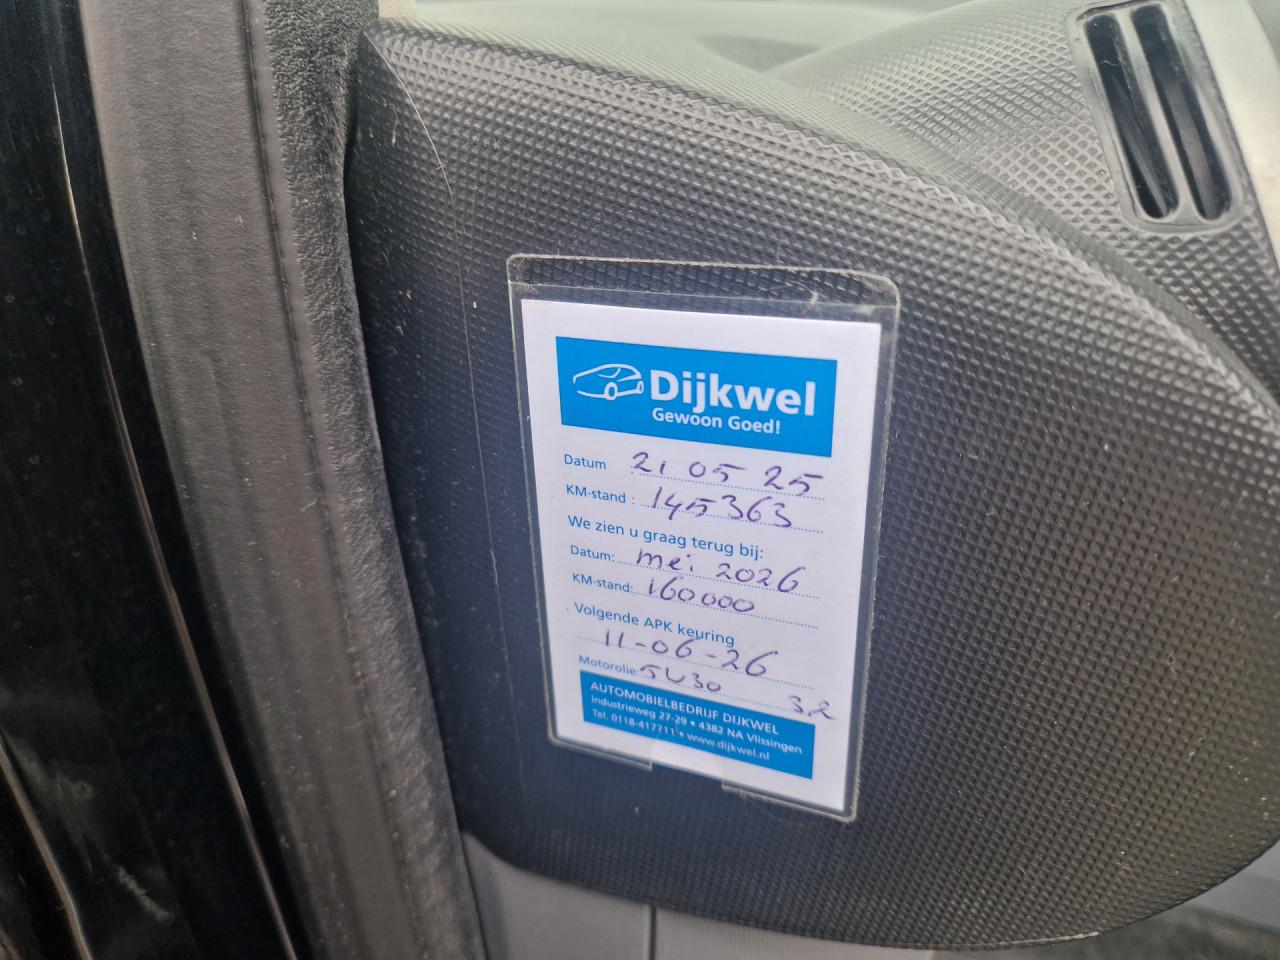 Dijkwel
Gewoon Goed!
Datum 21 05 25
KM-stand : 145363
We zien u graag terug bij:
Datum: mei 2026
KM-stand: 160000
Volgende APK keuring
11-06-26
Motorolie: 5W30 3.2
AUTOMOBIELBEDRIJF DIJKWEL
industrieweg 27-29 • 4382 NA Vlissingen
Tel. 0118-417711 • www.dijkwel.nl